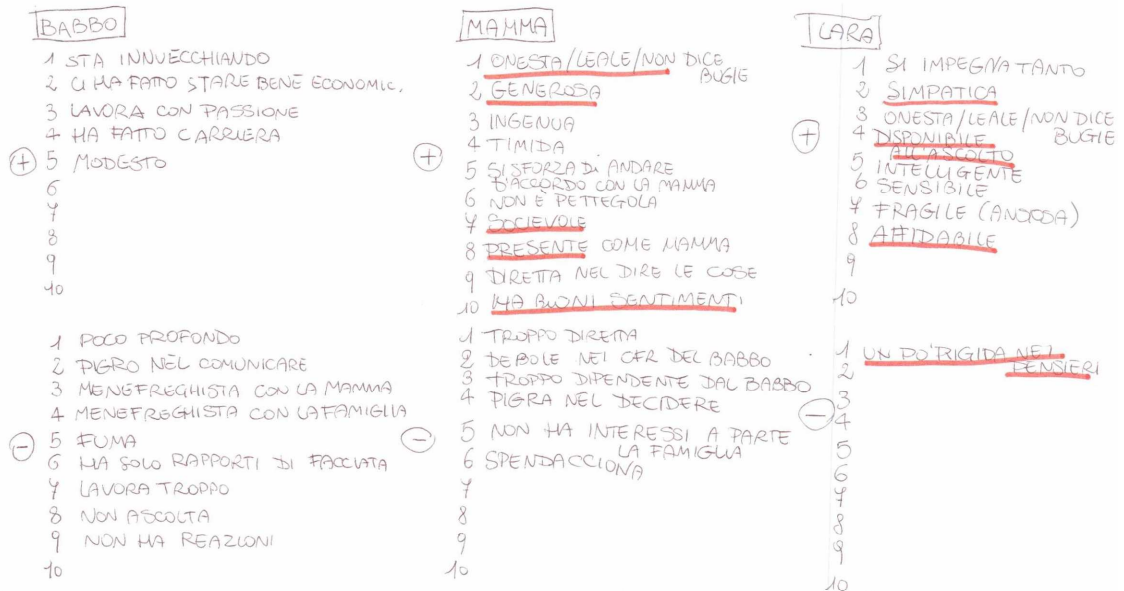 BABBO
1 STA INNVECCHIANDO
2 CI HA FATTO STARE BENE ECONOMIC.
3 LAVORA CON PASSIONE
4 HA FATTO CARRIERA
+ 5 MODESTO
6
7
8
9
10
1 POCO PROFONDO
2 PIGRO NEL COMUNICARE
3 MENEFREGHISTA CON LA MAMMA
4 MENEFREGHISTA CON LA FAMIGLIA
- 5 FUMA
6 HA SOLO RAPPORTI DI FACCIATA
7 LAVORA TROPPO
8 NON ASCOLTA
9 NON HA REAZIONI
10
MAMMA
1 ONESTA/LEALE/NON DICE
BUGIE
2 GENEROSA
3 INGENUA
+ 4 TIMIDA
5 SI SFORZA DI ANDARE
D'ACCORDO CON LA MAMMA
6 NON È PETTEGOLA
7 SOCIEVOLE
8 PRESENTE COME MAMMA
9 DIRETTA NEL DIRE LE COSE
10 HA BUONI SENTIMENTI
1 TROPPO DIRETTA
2 DEBOLE NEI CFR DEL BABBO
3 TROPPO DIPENDENTE DAL BABBO
4 PIGRA NEL DECIDERE
- 5 NON HA INTERESSI A PARTE
LA FAMIGLIA
6 SPENDACCIONA
7
8
9
10
LARA
1 SI IMPEGNA TANTO
2 SIMPATICA
3 ONESTA/LEALE/NON DICE
BUGIE
+ 4 DISPONIBILE
ALL'ASCOLTO
5 INTELLIGENTE
6 SENSIBILE
7 FRAGILE (ANSIOSA)
8 AFFIDABILE
9
10
1 UN PO' RIGIDA NEI
PENSIERI
2
3
- 4
5
6
7
8
9
10